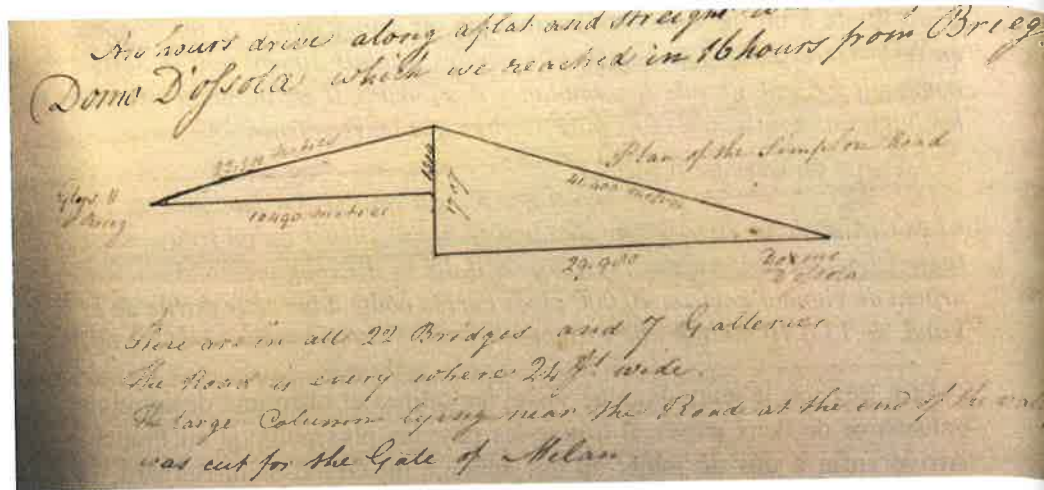 hours drive along a flat and streight
Domo D'ossola which we reached in 16 hours from Brieg
Plan of the Simplon Road
metres
41.400 metres
Brieg
10490 metres
1707
29.980
Domo
D'ossola
There are in all 22 Bridges and 7 Galleries
The Road is every where 24 ft wide.
The large Column lying near the Road at the end of the
was cut for the Gate of Milan